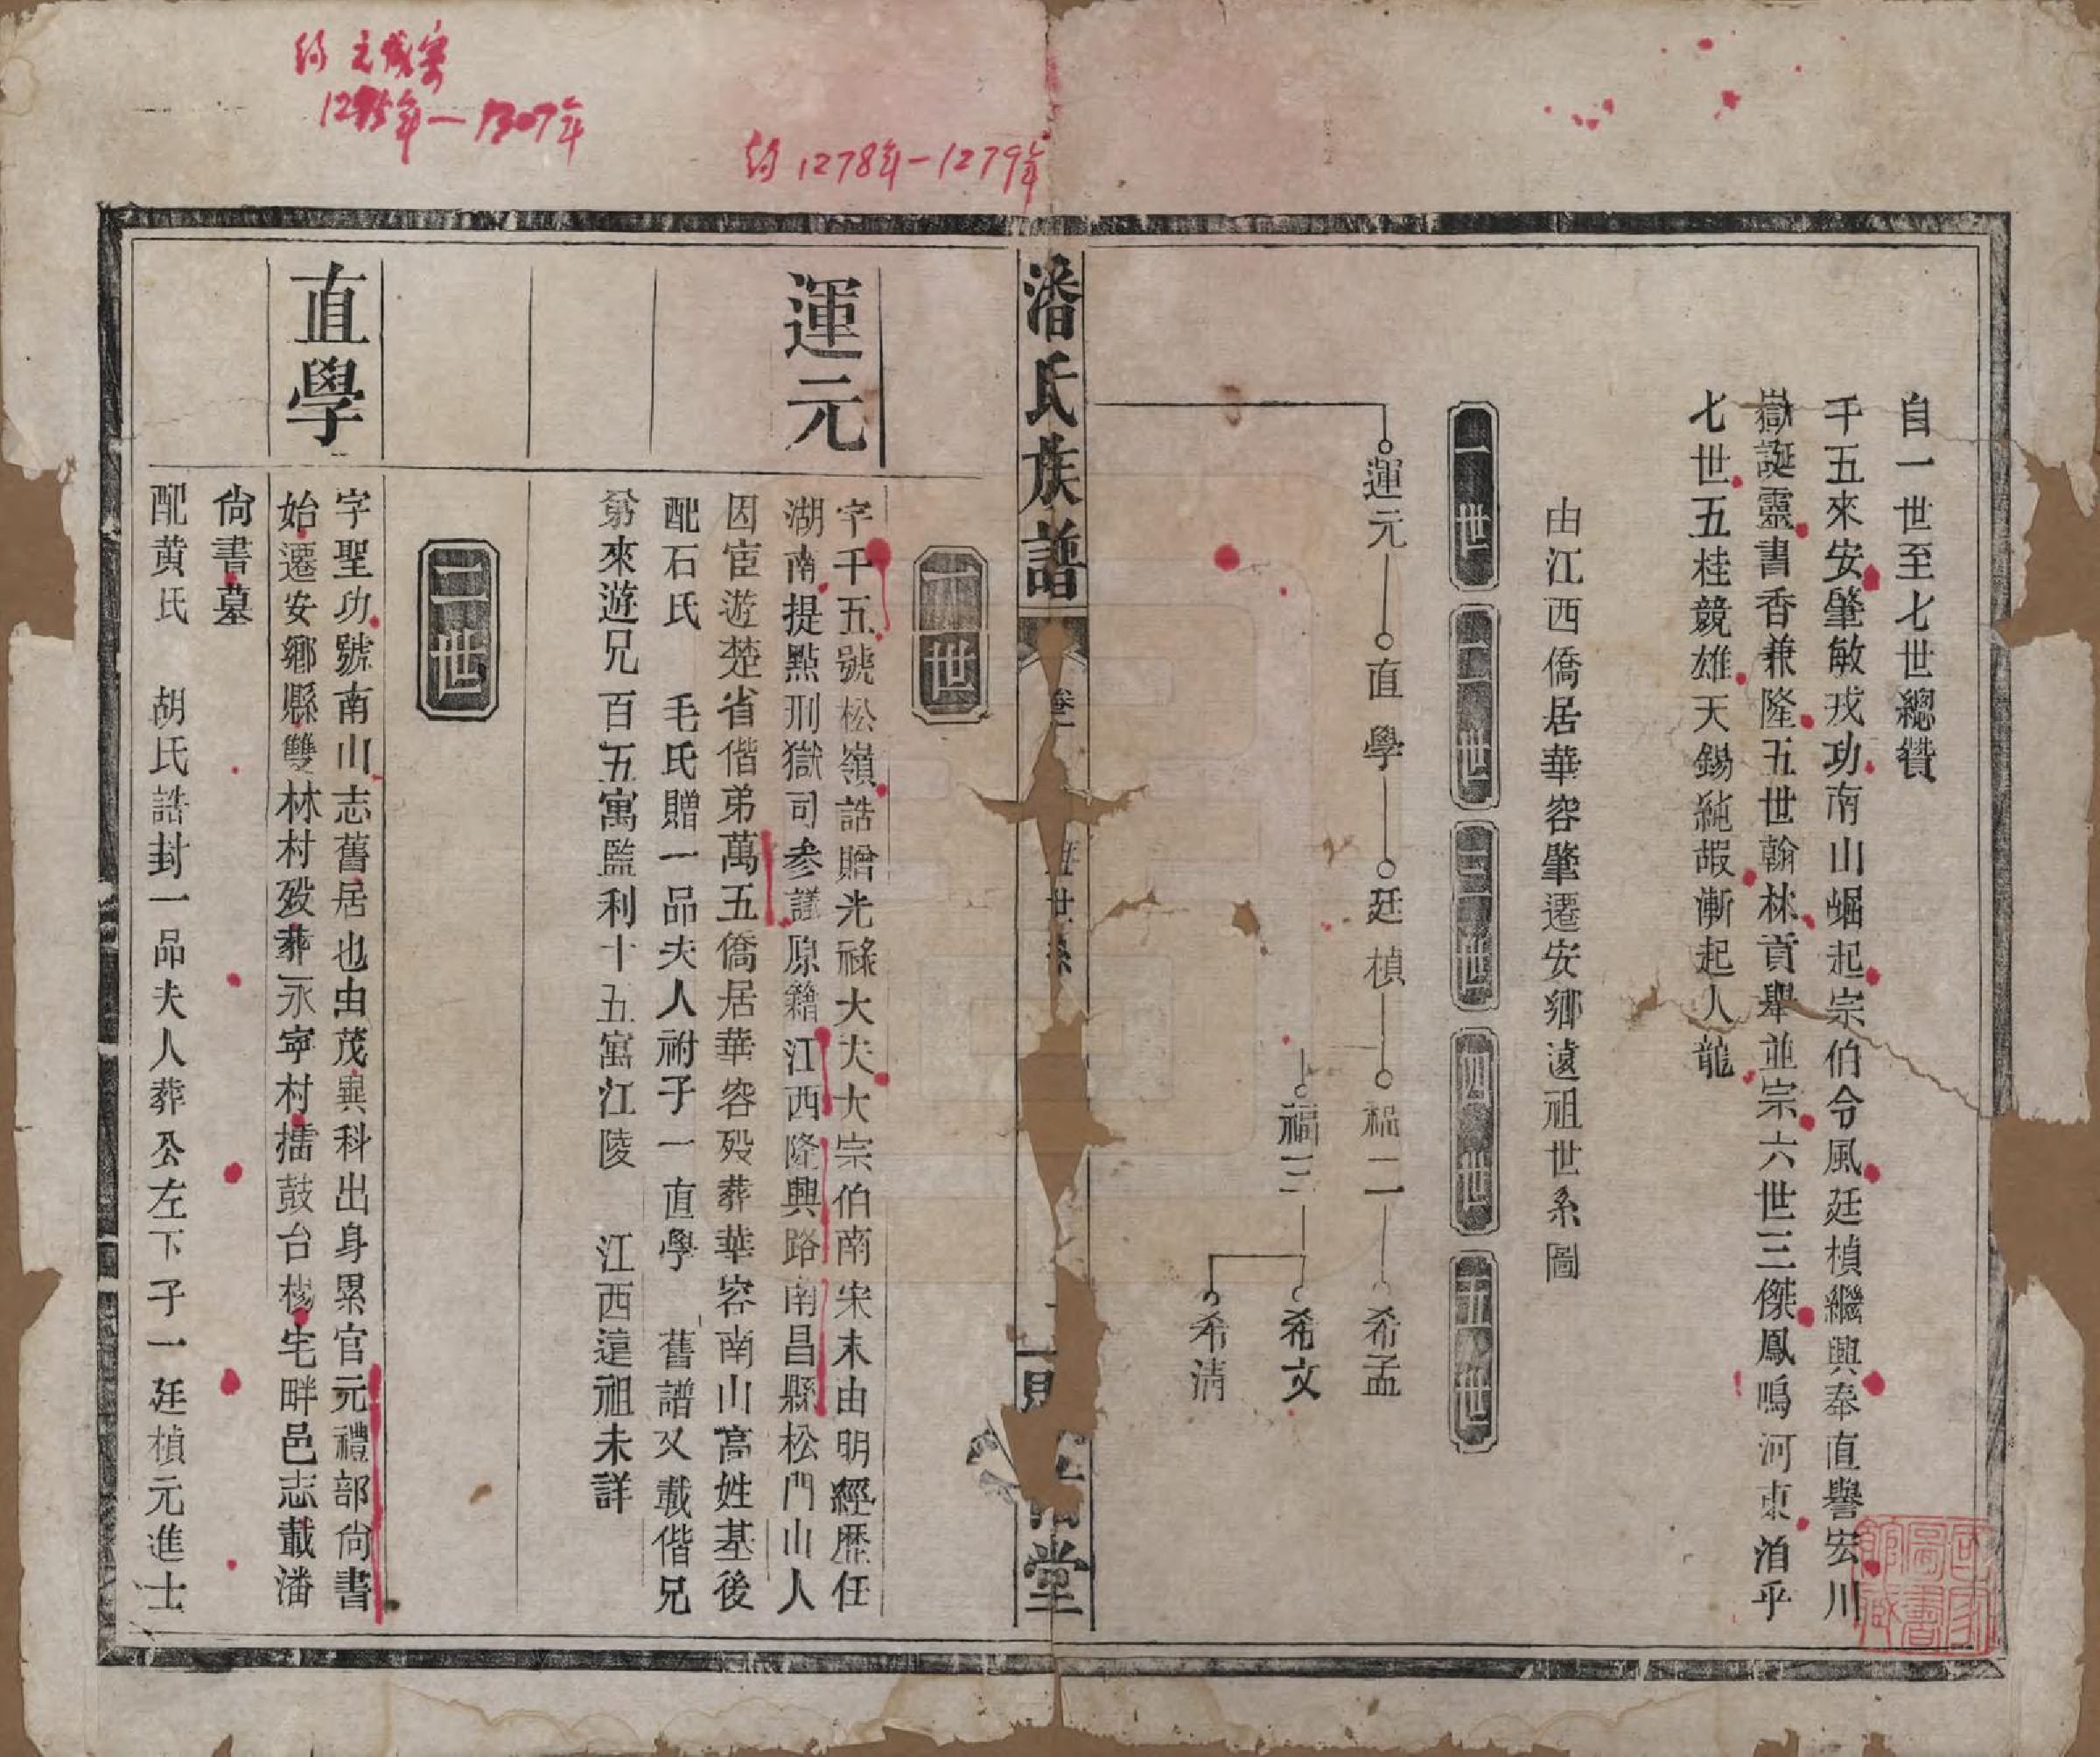 自一世至七世總贊
千五來安肇敏戎功南山崛起宗伯令風廷楨繼興奉直譽宏川
嶽誕靈書香兼隆五世翰林貢舉並宗六世三傑鳳鳴河東洎乎
七世五桂競雄天錫純嘏漸起人龍
由江西僑居華容肇遷安鄉遠祖世系圖
一世
二世
三世
四世
五世
運元
直學
廷楨
福二
希孟
福三
希文
希清
潘氏族譜
卷
世系
堂
約1278年-1279年
一世
運元
字千五號松嶺誥贈光祿大夫大宗伯南宋末由明經歷任
湖南提點刑獄司參議原籍江西隆興路南昌縣松門山人
因宦遊楚省偕弟萬五僑居華容歿葬華容南山高姓基後
配石氏 毛氏贈一品夫人祔子一直學 舊譜又載偕兄
弟來遊兄百五寓監利十五寓江陵 江西遠祖未詳
約元成宗
1295年-1307年
二世
直學
字聖功號南山志舊居也由茂異科出身累官元禮部尚書
始遷安鄉縣雙林村歿葬永寧村擂鼓台楊宅畔邑志載潘
尚書墓
配黄氏 胡氏誥封一品夫人葬公左下子一廷楨元進士
國家圖書館藏